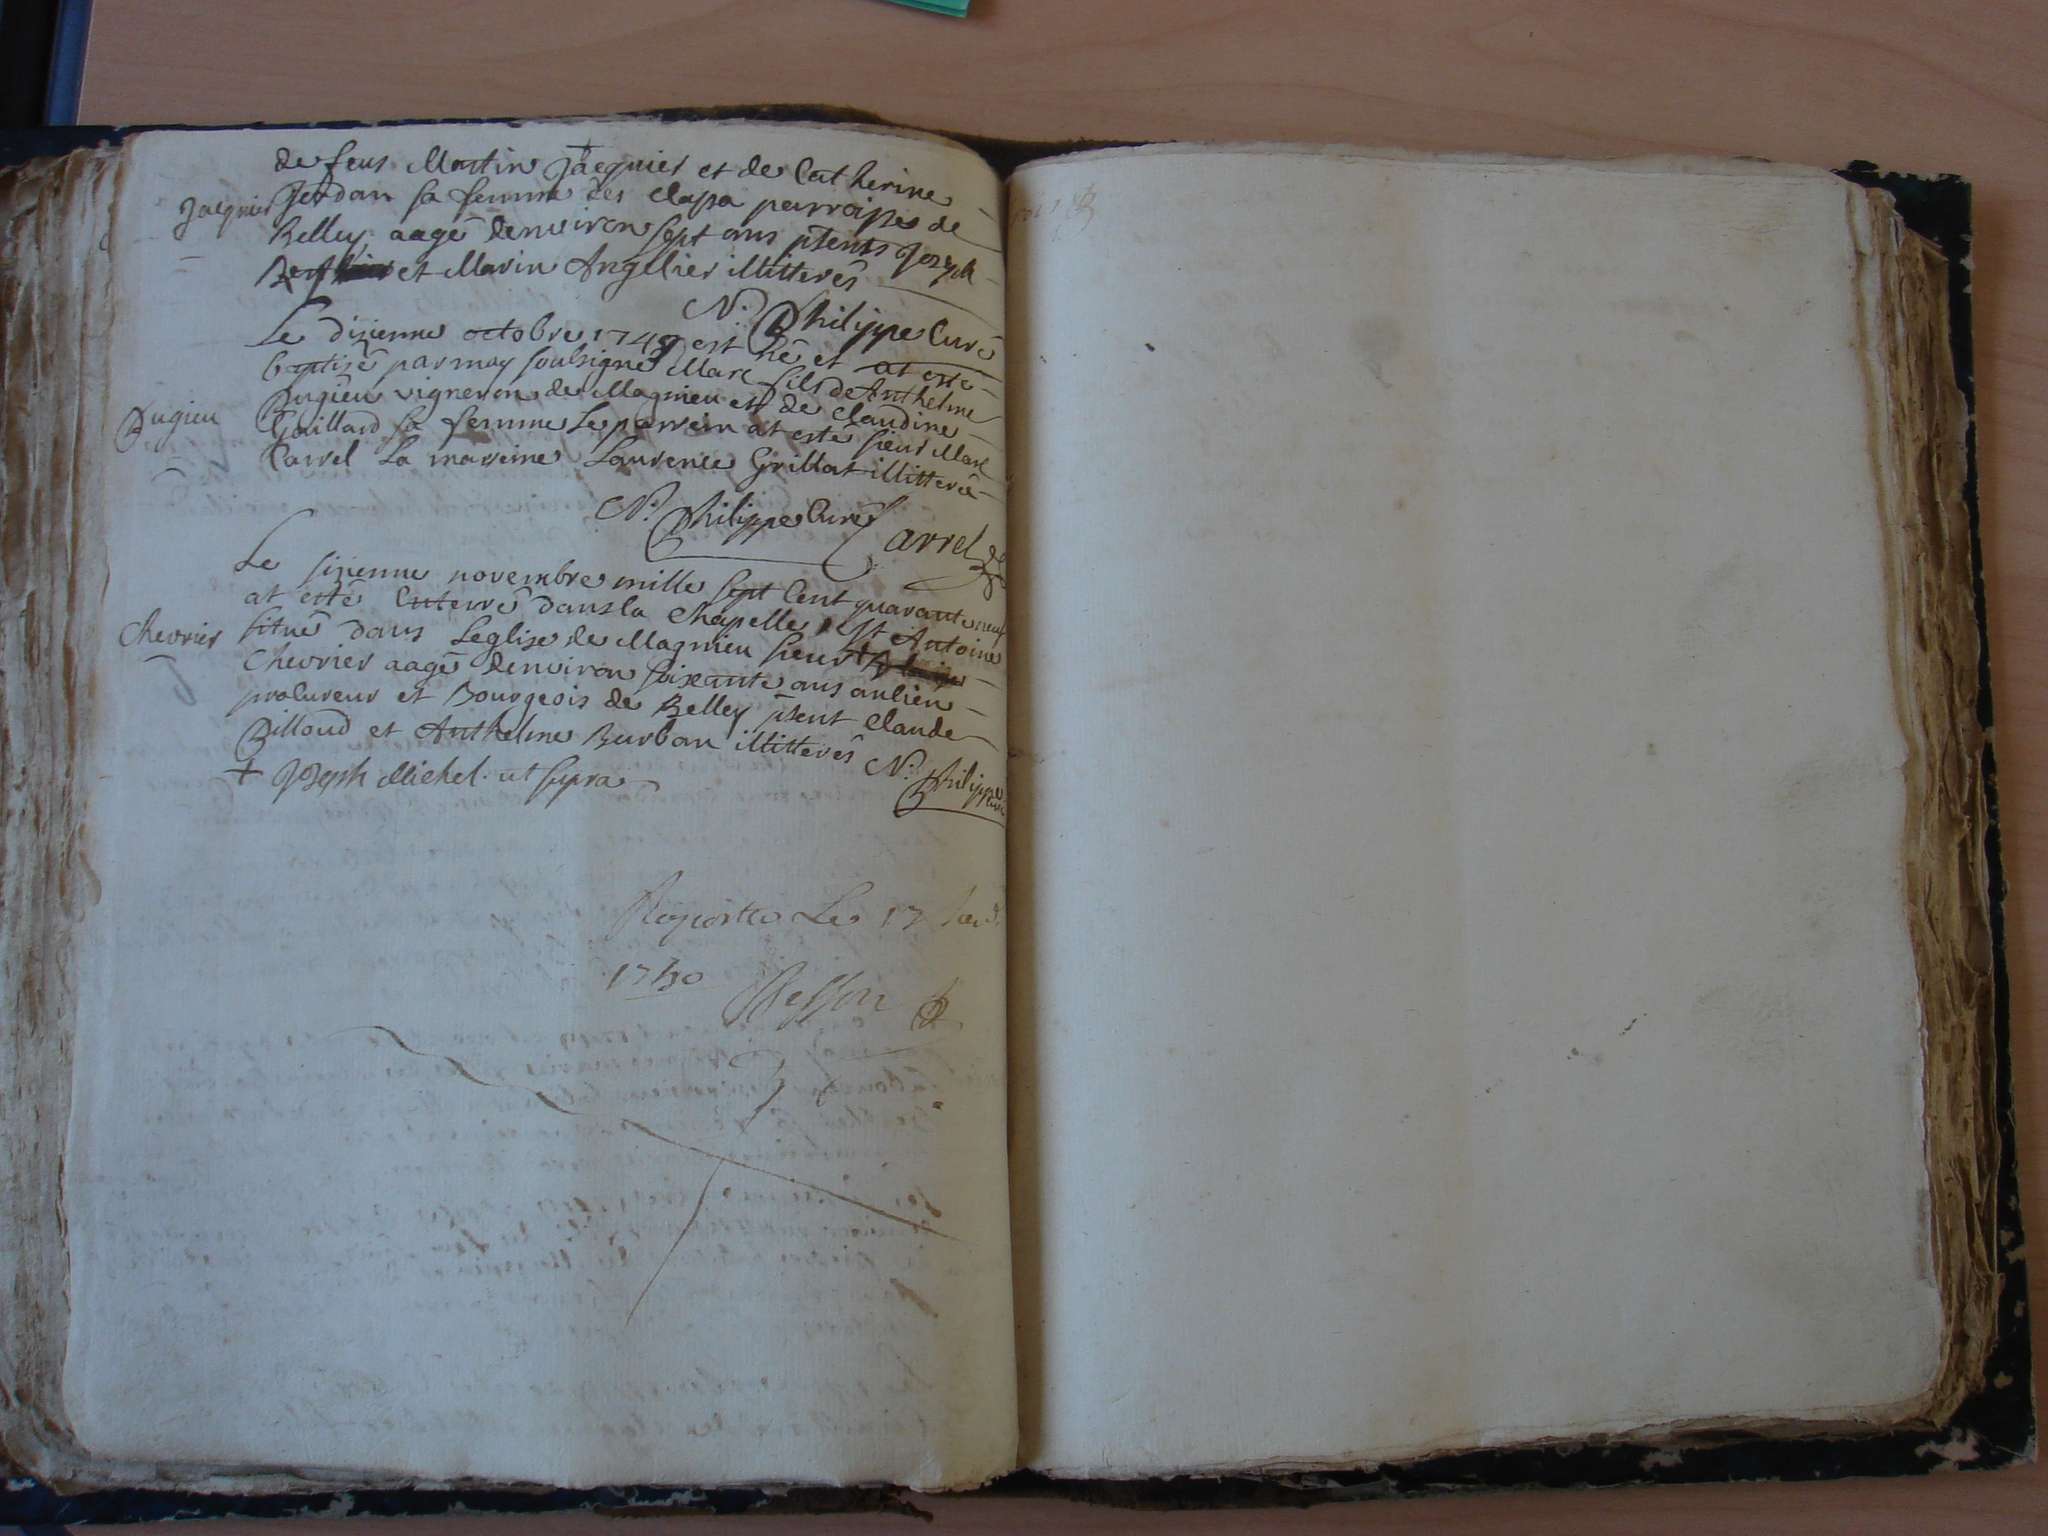 de feus Martin Jacquier et de Catherine
Jacquier
Jordan sa femme des clapa parroisses de
Belley aagé denviron sept ans psents Joseph
et Marin Angelier illitterés
N. Philippe Curé
Le dizienne octobre 1749 est né et at esté
baptisé par moy soubsigné Marc fils de Anthelme
Bugieu
Bugieu vigneron de Magnieu et de Claudine
Gaillard sa femme Le parrein at esté sieur Marc
Carrel La marreine Laurence Grillat illitteré
N. Philippe Curé Carrel
Le sizienne novembre mille sept Cent quarante neuf
at esté Enterré dans la Chapelle St Antoine
Chevrier
situé dans Leglise de Magnieu sieur +
Chevrier aagé denviron soixante ans anlien
procureur et Bourgeois de Belley psent Claude
Billoud et Anthelme Burban illitterés N. Philippe Curé
+ Joseph Michel ut supra
Reporté Le 17
1750 Besson